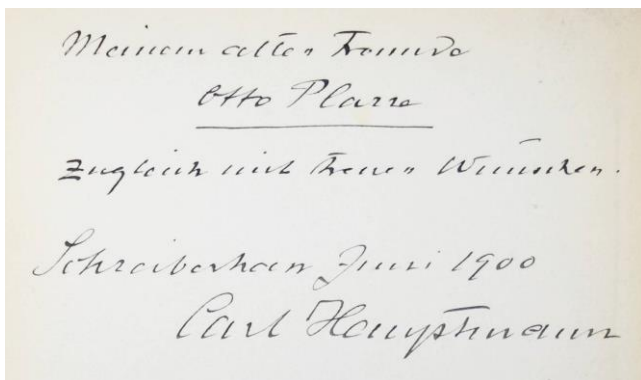 Meinem alten Freunde
Otto Plarre
Zugleich mit treuen Wünschen.
Schreiberhau Juni 1900
Carl Hauptmann